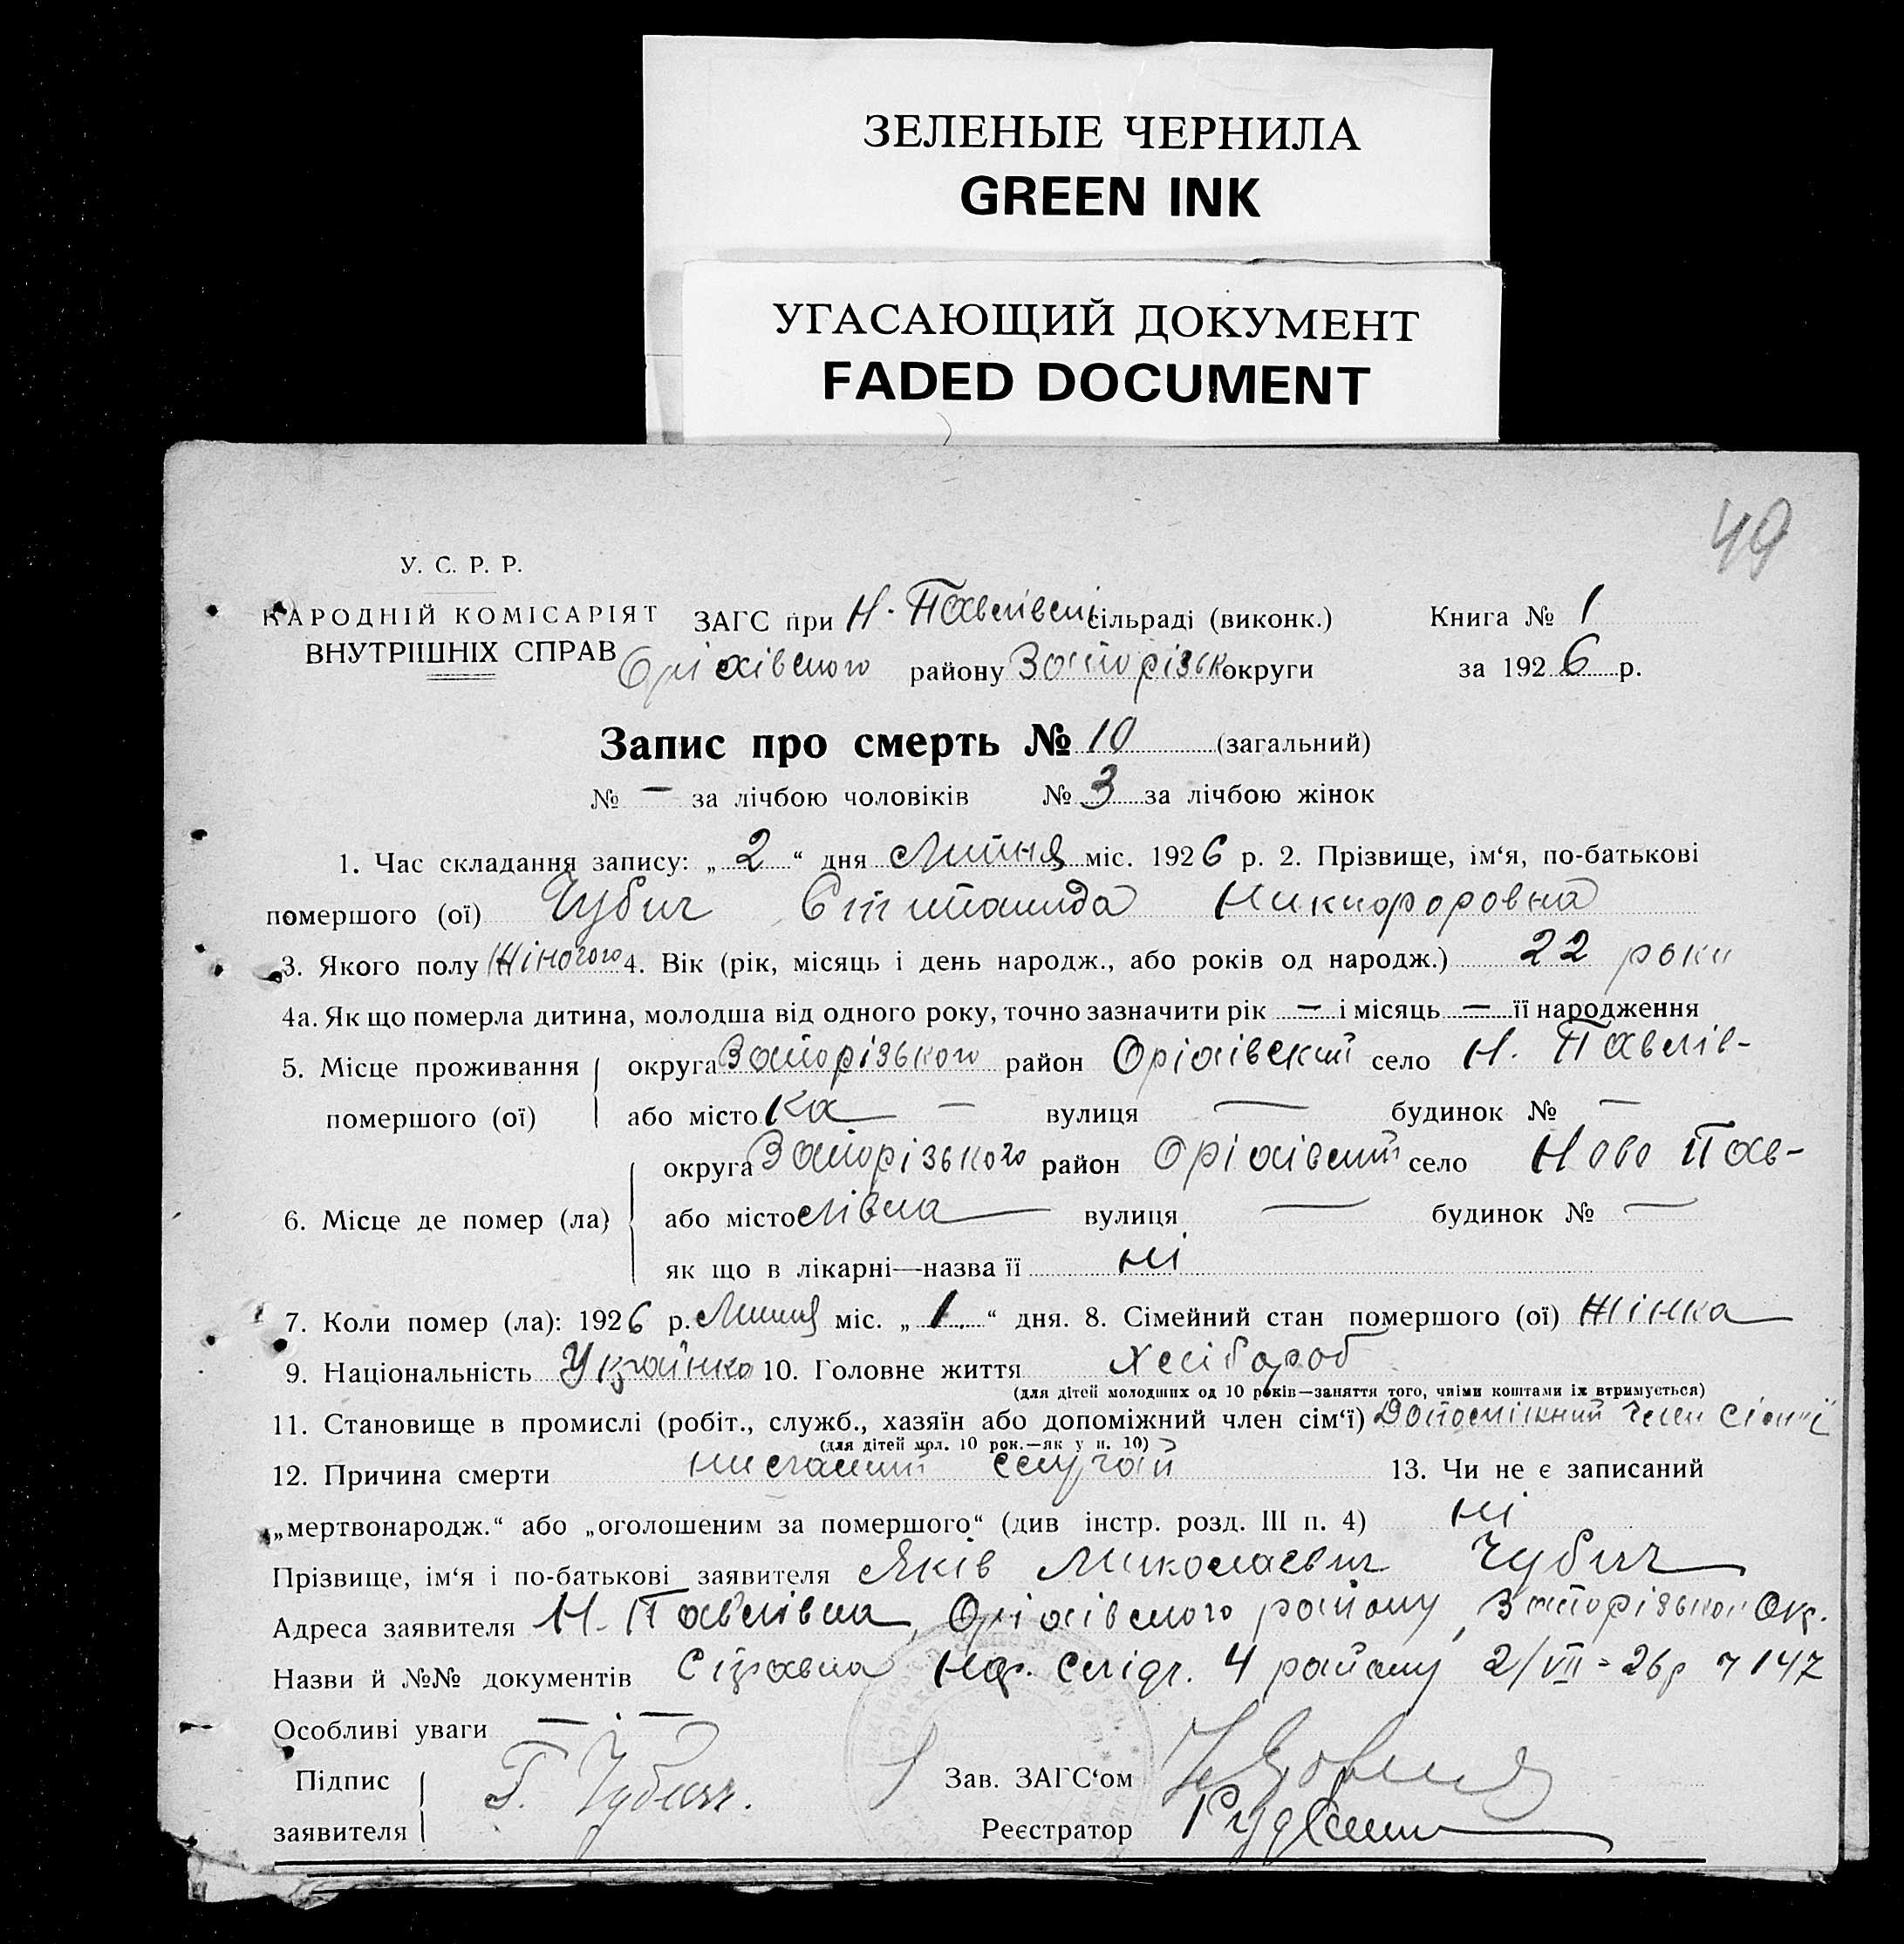 ЗЕЛЕНЫЕ ЧЕРНИЛА
GREEN INK
УГАСАЮЩИЙ ДОКУМЕНТ
FADED DOCUMENT
49
У. С. Р. Р.
НАРОДНІЙ КОМІСАРІЯТ
ВНУТРІШНІХ СПРАВ
ЗАГС при Н. Павлівські сільраді (виконк.)
Оріхівського району Запорізьк округи
Книга № 1
за 1926 р.
Запис про смерть № 10 (загальний)
№ — за лічбою чоловіків № 3 за лічбою жінок
1. Час складання запису: „ 2 “ дня Липня міс. 1926 р. 2. Прізвище, ім‘я, по-батькові
помершого (ої) Чубич Степанида Никифоровна
3. Якого полу Жіночого 4. Вік (рік, місяць і день народж., або років од народж.) 22 роки
4а. Як що померла дитина, молодша від одного року, точно зазначити рік — і місяць — її народження
5. Місце проживання помершого (ої) округа Запорізького район Оріхівський село Н. Павлів-
або місто ка — вулиця — будинок № —
6. Місце де помер (ла) округа Запорізького район Оріхівський село Ново Пав-
або місто лівка — вулиця — будинок № —
як що в лікарні—назва її ні
7. Коли помер (ла): 1926 р. Липня міс. „ 1. “ дня. 8. Сімейний стан помершого (ої) жінка
9. Національність Українка 10. Головне життя хлібороб
(для дітей молодших од 10 років—заняття того, чиїми коштами їх втримується)
11. Становище в промислі (робіт., служб., хазяїн або допоміжний член сім‘ї) Допоміжний член сім'ї
(для дітей мол. 10 рок.—як у п. 10)
12. Причина смерти нещасний случай 13. Чи не є записаний
„мертвонародж.“ або „оголошеним за помершого“ (див інстр. розд. III п. 4) ні
Прізвище, ім‘я і по-батькові заявителя Яків Миколаевич Чубич
Адреса заявителя Н. Павлівка, Оріхівського району, Запорізької Окр.
Назви й №№ документів Справка Нар. Слідч. 4 району 2/VII - 26р ч 147
Особливі уваги — . —
Підпис заявителя Чубич.
Зав. ЗАГС‘ом
Реєстратор